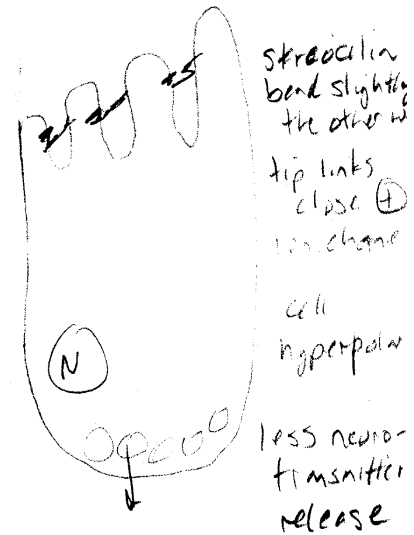 stereocilia
bend slightly
the other w
tip links
close +
ion channe
cell
hyperpolar
N
less neuro-
transmitter
release